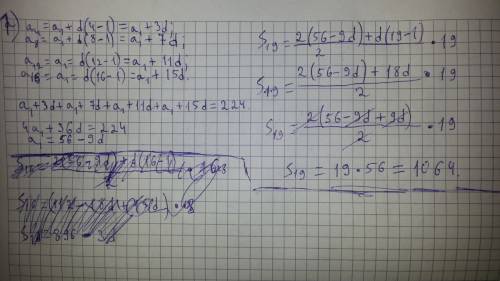 a₄ = a₁ + d(4-1) = a₁ + 3d;
a₈ = a₁ + d(8-1) = a₁ + 7d;
a₁₂ = a₁ = d(12-1) = a₁ + 11d;
a₁₆ = a₁ = d(16-1) = a₁ + 15d.
a₁+3d+a₁+7d+a₁+11d+a₁+15d=224
4a₁+36d=224
a₁ = 56-9d
S₁₉ = (2(56-9d)+d(19-1))/2 · 19
S₁₉ = (2(56-9d)+18d)/2 · 19
S₁₉ = (2(56-9d+9d))/2 · 19
S₁₉ = 19·56 = 1064.